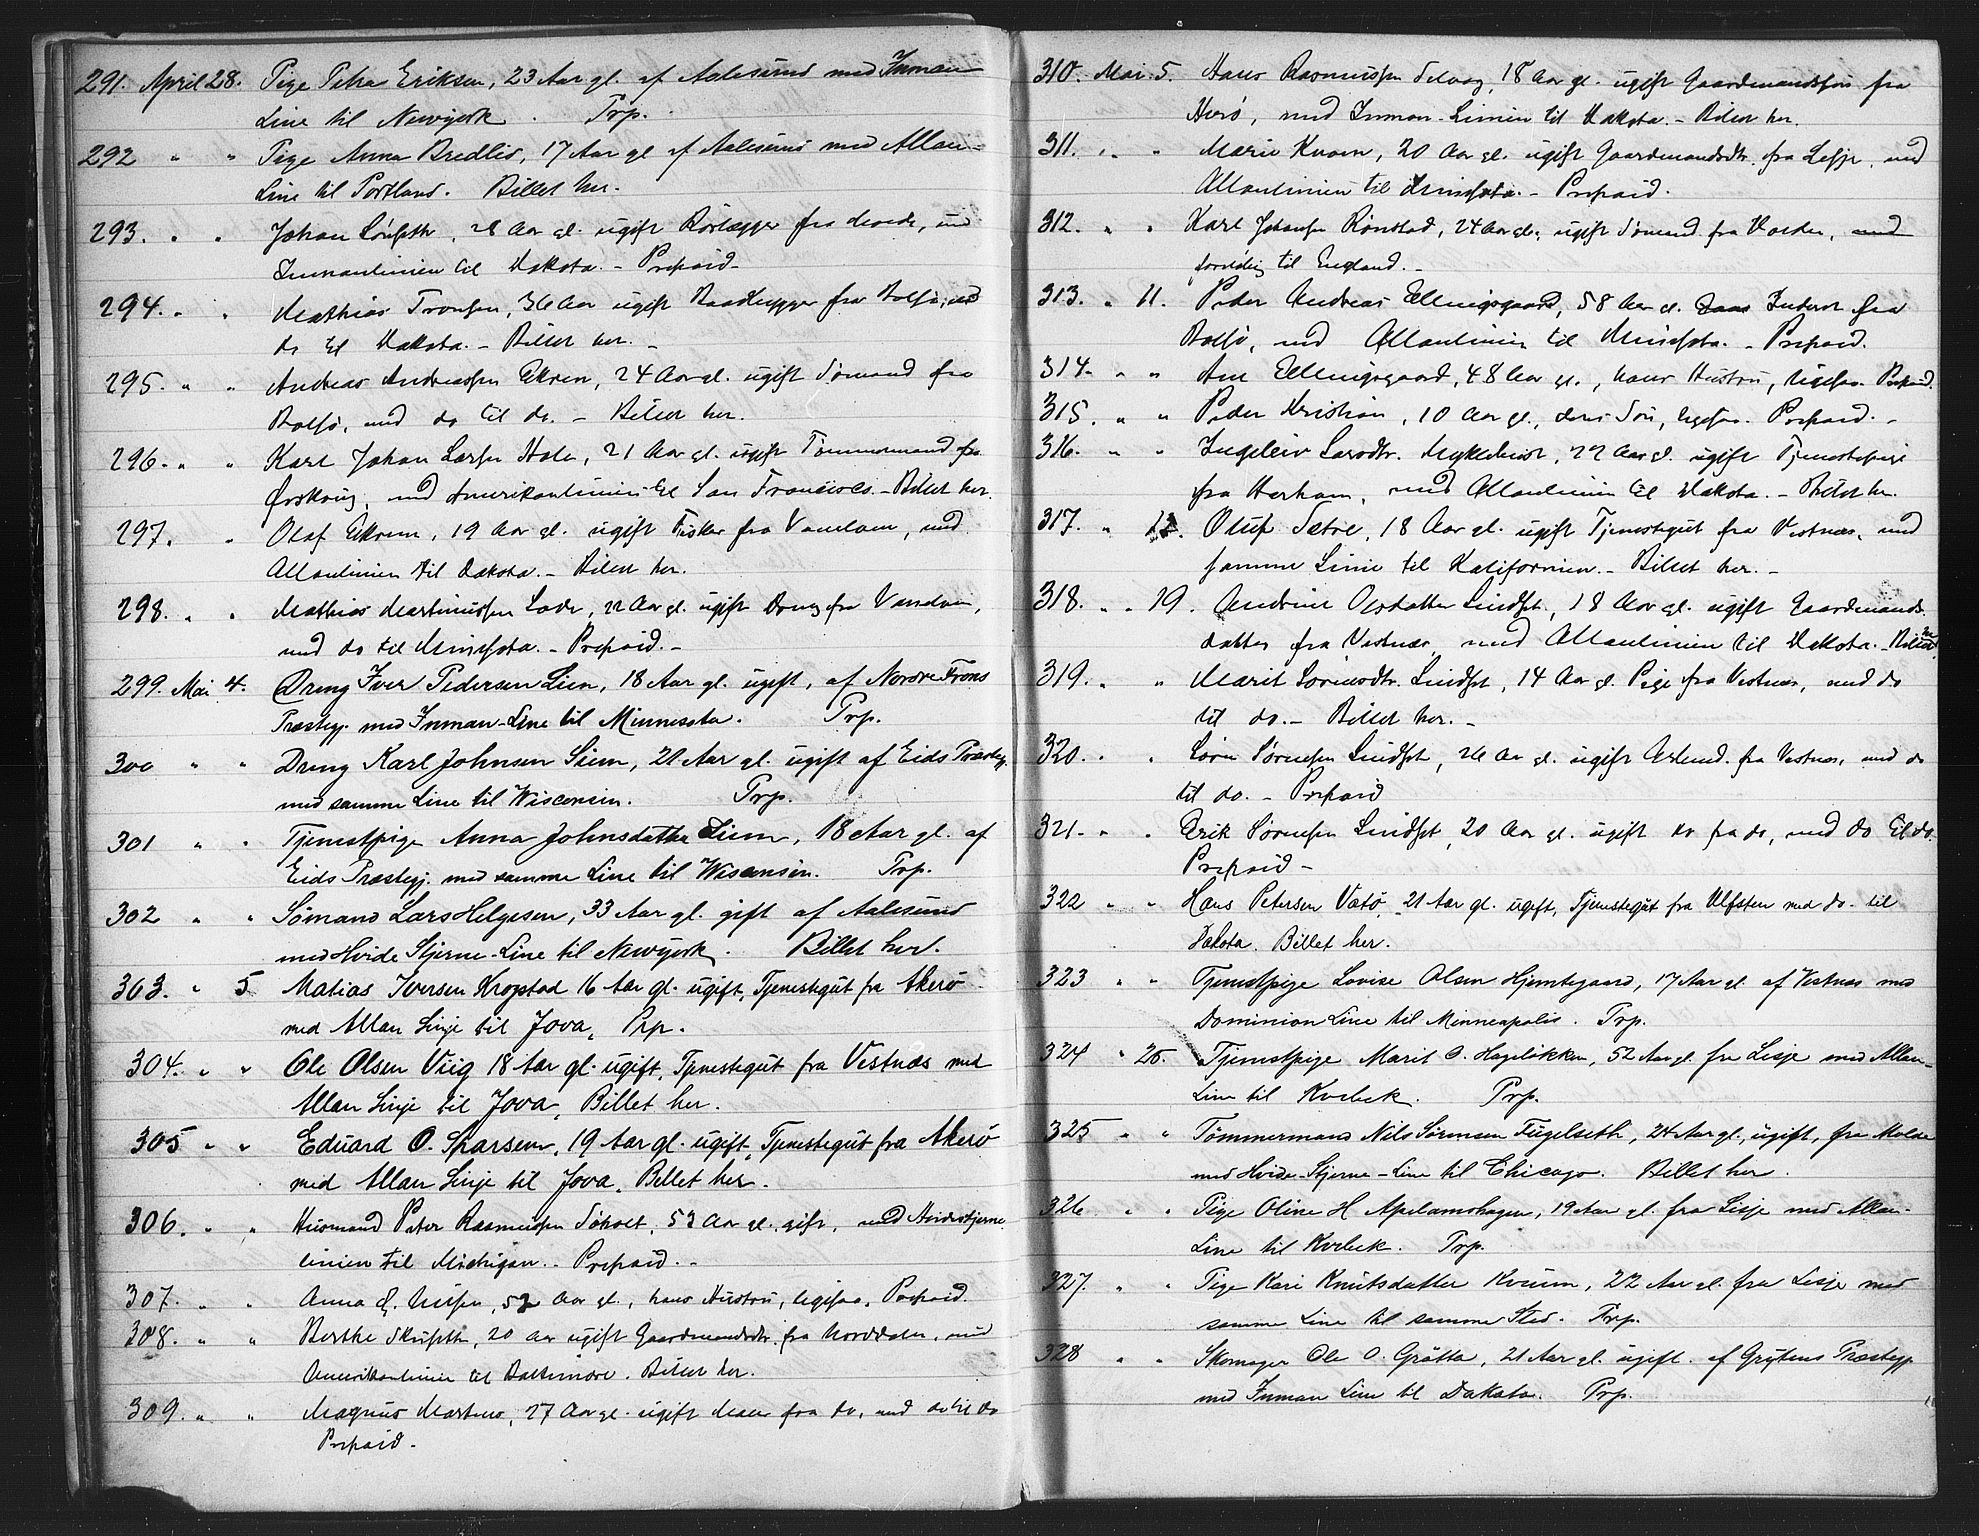 291. April 28. Pige Petra Eriksen, 23 Aar gl. af Aalesund med Inman
Line til Newyork. Prp.
292 " " Pige Anna Bredlid, 17 Aar gl af Aalesund med Allan-
Line til Portland. Billet her.
293. " " Johan 28 Aar gl. ugift fra med
Inmanlinien til Dakota. - Prepaid -
294. " " Mathias Tronsen, 36 Aar ugift fra Bolsø, med
do til Dakota. - Billet her. -
295. " " Andreas Andreassen Ekren, 24 Aar gl. ugift Sømand fra
Bolsø, med do til do. - Billet her.
296. " " Karl Johan Larsen Hole, 21 Aar gl. ugift Tømmermand fra
Ørskoug, med Amerikanlinien til San Francisco. - Billet her.
297. " Olaf Ekrem, 19 Aar gl. ugift Fisker fra Vanelven, med
Allanlinien til Dakota. - Billet her.
298. " " Mathias Martinussen 22 Aar gl. ugift Dreng fra
med do til Minesota. - Prepaid. -
299. Mai 4. Dreng Iver Pedersen Lien, 18 Aar gl. ugift, af Nordre Frons
Præstegj. med Inman-Line til Minnesota. Prp.
300 " " Dreng Karl Johnsen Siem, 21 Aar gl. ugift af Eids Præstegj.
med samme Line til Wisconsin. Prp.
301 " " Tjenestpige Anna Johnsdatter Siem, 18 Aar gl. af
Eids Præstegj. med samme Line til Wisconsin. Prp.
302 " " Sømand Lars Helgesen, 33 Aar gl. gift af Aalesund
med Hvide Stjerne-Line til Newyork. Billet her.
303. " 5 Matias Iversen Krogstad 16 Aar gl. ugift, Tjenestegut fra Akerø
med Allan Linje til Jova, Prp.
304. " " Ole Olsen Viig 18 Aar gl. ugift, Tjenestegut fra Vestnæs med
Allan Linje til Jova, Billet her.
305 " " Eduard O. Sparsem, 19 Aar gl. ugift, Tjenestegut fra Akerø
med Allan Linje til Jova, Billet her.
306. " " Husmand Peter Rasmussen Søholt, 53 Aar gl. gift, med Hvidestjerne
linien til Michigan. - Prepaid. -
307. " " Anna 52 Aar gl., hans Hustru, ligesaa, Prepaid.
308. " " Berthe 20 Aar ugift Gaardmandsdtr. fra Norddalen, med
Amerikanlinien til Baltimore. Billet her.
309. " " Magnus 27 Aar gl. ugift Maler fra do, med do til do
Prepaid. -
310. Mai 5. Hans Rasmussen Selvaag, 18 Aar gl. ugift Gaardmandssøn fra
Herø, med Inman-Linien til Dakota. - Billet her.
311. " " Marie Kvam, 20 Aar gl. ugift Gaardmandsdtr. fra Lesje, med
Allanlinien til Minesota. - Prepaid.
312. " " Karl Johansen Rønstad, 24 Aar gl. ugift Sømand fra Volden, med
foreløbig til England. -
313. " 11. Peder Andreas Ellingsgaard, 58 Aar gl. Inderst fra
Bolsø, med Allanlinien til Minesota. - Prepaid.
314. " " Ane Ellingsgaard, 48 Aar gl., hans Hustru, ligesaa. Prepaid.
315. " " Peder Kristian, 10 Aar gl., deres Søn, ligesaa. Prepaid. -
316. " " Ingeleiv Larsdtr. Myklebust, 22 Aar gl. ugift Tjenestepige
fra Harham, med Allanlinien til Dakota. - Billet her.
317. " 12. Oluf Sætre, 18 Aar gl. ugift Tjenestegut fra Vestnæs, med
samme Linie til Kalifornien. - Billet her. -
318. " " 19. Andrine Olsdatter Lindset, 18 Aar gl. ugift Gaardmands-
datter fra Vestnæs, med Allanlinien til Dakota. - Billet her
319. " " Marit Sørensdtr. Lindset, 14 Aar gl. Pige fra Vestnæs, med do
til do. - Billet her. -
320. " " Søren Sørensen Lindset, 26 Aar gl. ugift Arbmd. fra Vestnæs, med do
til do. - Prepaid
321. " " Erik Sørensen Lindset, 20 Aar gl. ugift do fra do, med do til do.
Prepaid -
322 " " Hans Petersen Vatø, 21 Aar gl. ugift, Tjenestegut fra Ulfsten med do. til
Dakota. Billet her.
323 " " Tjenestpige Lovise Olsen Hjemtegaard, 17 Aar gl. af Vestnæs med
Dominion Line til Minneapolis. Prp.
324 " 25. Tjenestpige Marit O. Hageløkken, 52 Aar gl. fra Lesje med Allan-
Line til Kvebek. Prp.
325 " " Tømmermand Nils Sørensen Fugelseth, 24 Aar gl., ugift, fra Molde
med Hvide-Stjerne-Line til Chicago. Billet her.
326 " " Pige Oline H Apelamshagen, 19 Aar gl. fra Lesje med Allan-
Line til Kvebek. Prp.
327. " " Pige Kari Knutsdatter Kvium, 22 Aar gl. fra Lesje med
samme Line til samme Sted. Prp.
328 " " Skomager Ole O. Grøtta, 21 Aar gl. ugift. af Grytens Præstegj.
med Inman Line til Dakota. Prp.